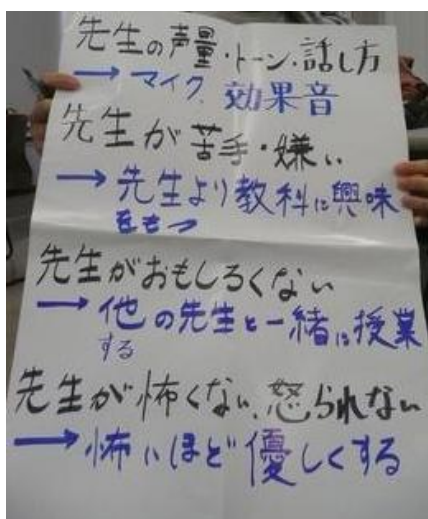 先生の声量・トーン・話し方
→ マイク、効果音
先生が苦手・嫌い
→ 先生より教科に興味
をもつ
先生がおもしろくない
→ 他の先生と一緒に授業
する
先生が怖くない、怒られない
→ 怖いほど優しくする